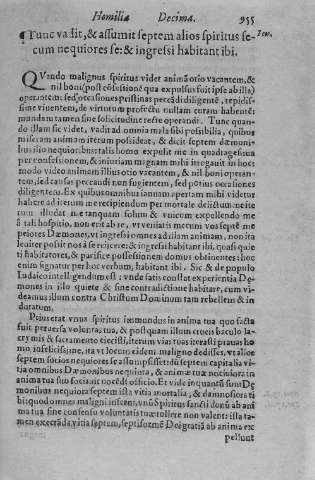 Homilia Decima. 955
¶Tunc vadit, & assumit septem alios spiritus se-
cum nequiores se: & ingressi habitant ibi.
QVando malignus spiritus videt animã otio vacantem, &
nil boni post cõfessionẽ qua expulsus fuit ipse ab illa
operantem: sed occasiones pristinas peccãdi diligentẽ, tepidis-
sime viuentem, de virtutum profectu nullam curam habentẽ:
mundam tamen sine solicitudine recte operandi. Tunc quan-
do illam sic videt, vadit ad omnia mala sibi possibilia, quibus
miseram animam iterum possideat, & dicit septem dæmoni-
bus alio nequioribus: talis homo expulit me in quadragesima
per confessionem, & iniuriam magnam mihi irrogauit in hoc:
modo video animam illius otio vacantem, & nil boni operan-
tem, sed causas peccandi non fugientem, sed potius occasiones
diligentem. Ex quibus omnibus ianuam apertam mihi videtur
habere ad iterum me recipiendum per mortale delictum: ne ite
rum illudat me tanquam solum & vnicum expellendo me
à tali hospitio, non erit ab re, vt veniatis mecum vos septẽ me
peiores Dæmones, vt ingressi omnes ad illam animam, non ita
leuiter possit nos à se reijcere: & ingressi habitant ibi, quasi quie
ti habitatores, & pacifice possessionem domus obtinentes: hoc
enim signatur per hoc verbum, habitant ibi. Sic & de populo
Iudaico intelligendum est: vnde satis constat experientia Dę-
mones in illo quiete & sine contradictione habitare, cum vi-
deamus illum contra Christum Dominum tam rebellem & in
duratum.
Prius erat vnus spiritus immundus in anima tua quo facta
fuit peruersa voluntas tua, & postquam illum crucis baculo la-
crymis & sacramento eiecisti, iterum vias tuas iterasti prauas ho
mo infelicissime, ita vt locum eidem maligno dedisses, vt alios
septem socios nequiores se assumpsisset: dũ septem capitalia vi-
tia omnibus Dæmonibus nequiora, & animæ tuæ nociuiora in
anima tua suo sociauit nocẽdi officio. Et vide inquantũ sunt Dę
monibus nequiora septem ista vitia mortalia, & damnosiora ti
bi: quod omnes maligni inferni, vnũ Spiritus sancti donũ ab ani
ma tua sine consensu voluntatis tuæ tollere non valent: ista ta-
men execrãda vitia septem, septiformẽ Dei gratiã ab anima ex
pellunt